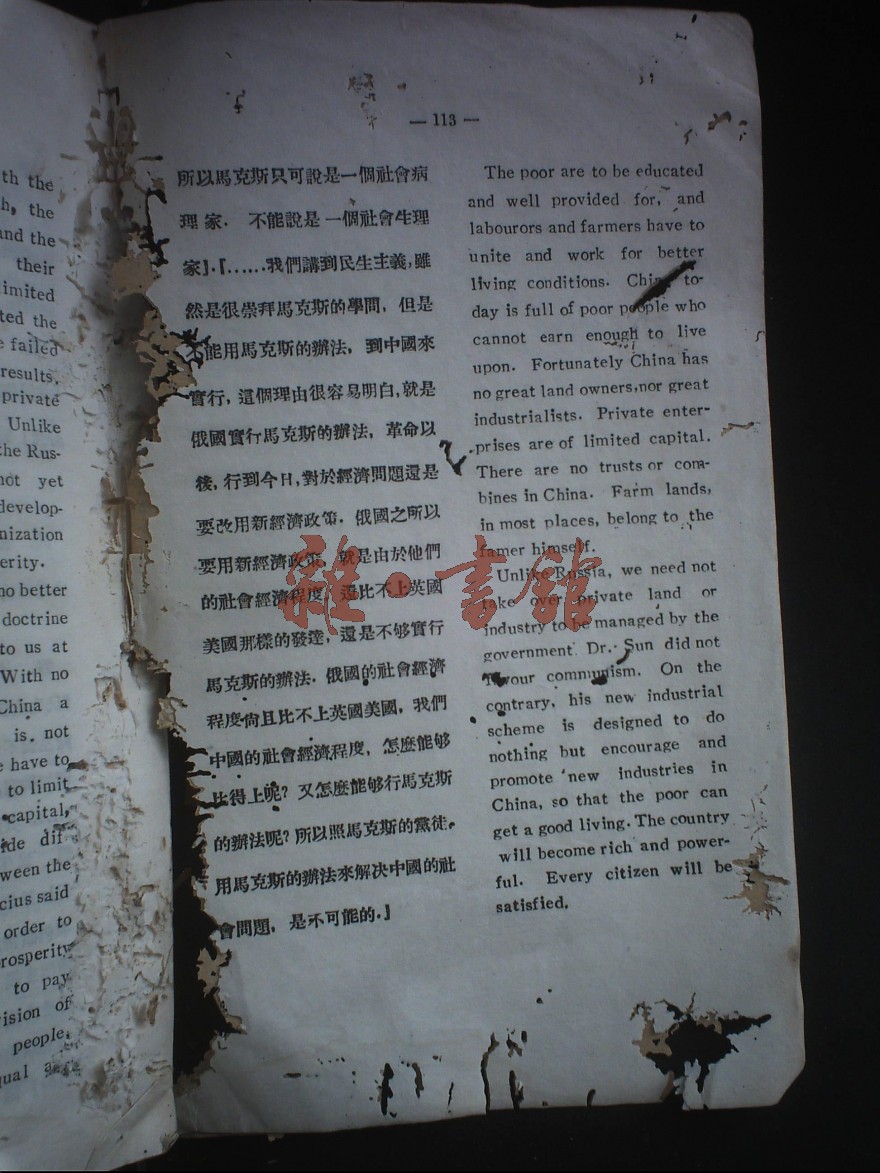 th the
h, the
and the
their
limited
ted the
e failed
results,
private
Unlike
the Rus-
not yet
develop-
nization
erity.
no better
doctrine
to us at
With no
China a
is not
e have to
to limit
capital,
ide dif
ween the
cius said
order to
rosperity
to pay
ision of
people.
qual
— 113 —
所以馬克斯只可說是一個社會病
理家． 不能說是一個社會生理
家』．『……我們講到民生主義，雖
然是很崇拜馬克斯的學問，但是
不能用馬克斯的辦法，到中國來
實行，這個理由很容易明白，就是
俄國實行馬克斯的辦法，革命以
後，行到今日，對於經濟問題還是
要改用新經濟政策．俄國之所以
要用新經濟政策 就是由於他們
的社會經濟程度 還比不上英國
美國那樣的發達，還是不够實行
馬克斯的辦法．俄國的社會經濟
程度尙且比不上英國美國，我們
中國的社會經濟程度，怎麼能够
比得上呢？又怎麼能够行馬克斯
的辦法呢？所以照馬克斯的黨徒，
用馬克斯的辦法來解决中國的社
會問題，是不可能的．』
The poor are to be educated
and well provided for, and
labourors and farmers have to
unite and work for better
living conditions. China to-
day is full of poor people who
cannot earn enough to live
upon. Fortunately China has
no great land owners,nor great
industrialists. Private enter-
prises are of limited capital.
There are no trusts or com-
bines in China. Farm lands,
in most places, belong to the
famer himself.
Unlike Russia, we need not
take over private land or
industry to be managed by the
government. Dr. Sun did not
favour communism. On the
contrary, his new industrial
scheme is designed to do
nothing but encourage and
promote new industries in
China, so that the poor can
get a good living. The country
will become rich and power-
ful. Every citizen will be
satisfied.
雜·書館